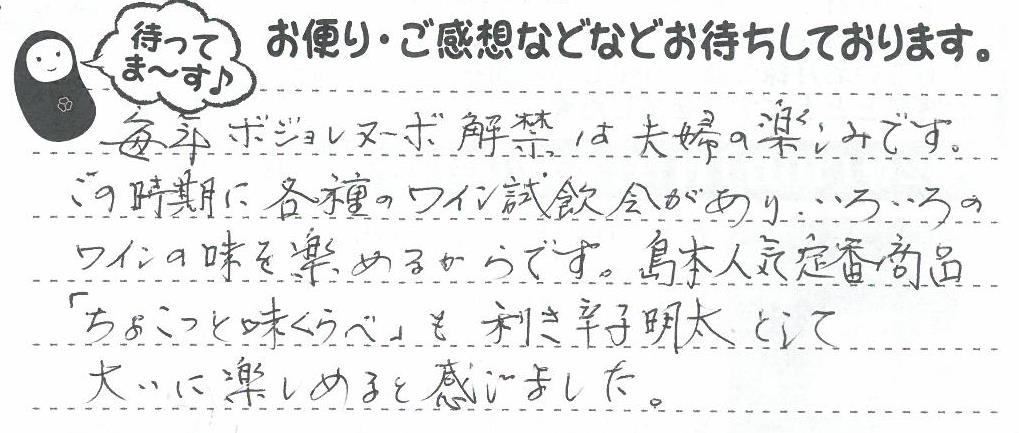 待って
ま〜す♪
お便り・ご感想などなどお待ちしております。
毎年ボジョレヌーボ解禁は夫婦の楽しみです。
この時期に各種のワイン試飲会があり、いろいろの
ワインの味を楽しめるからです。島本人気定番商品
「ちょこっと味くらべ」も利き辛子明太として
大いに楽しめると感じました。